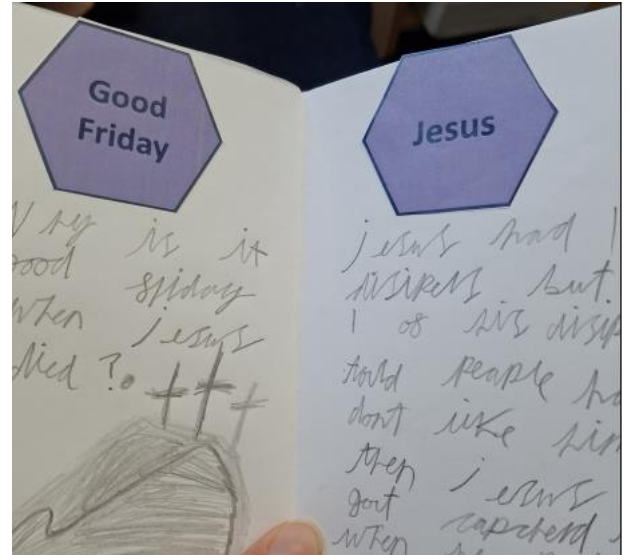 Good
Friday
Why is it
good friday
when jesus
died?
Jesus
jesus had 1
disipels but
1 of his disip
tould peaple
dont like him
then jesus
got capcherd
when